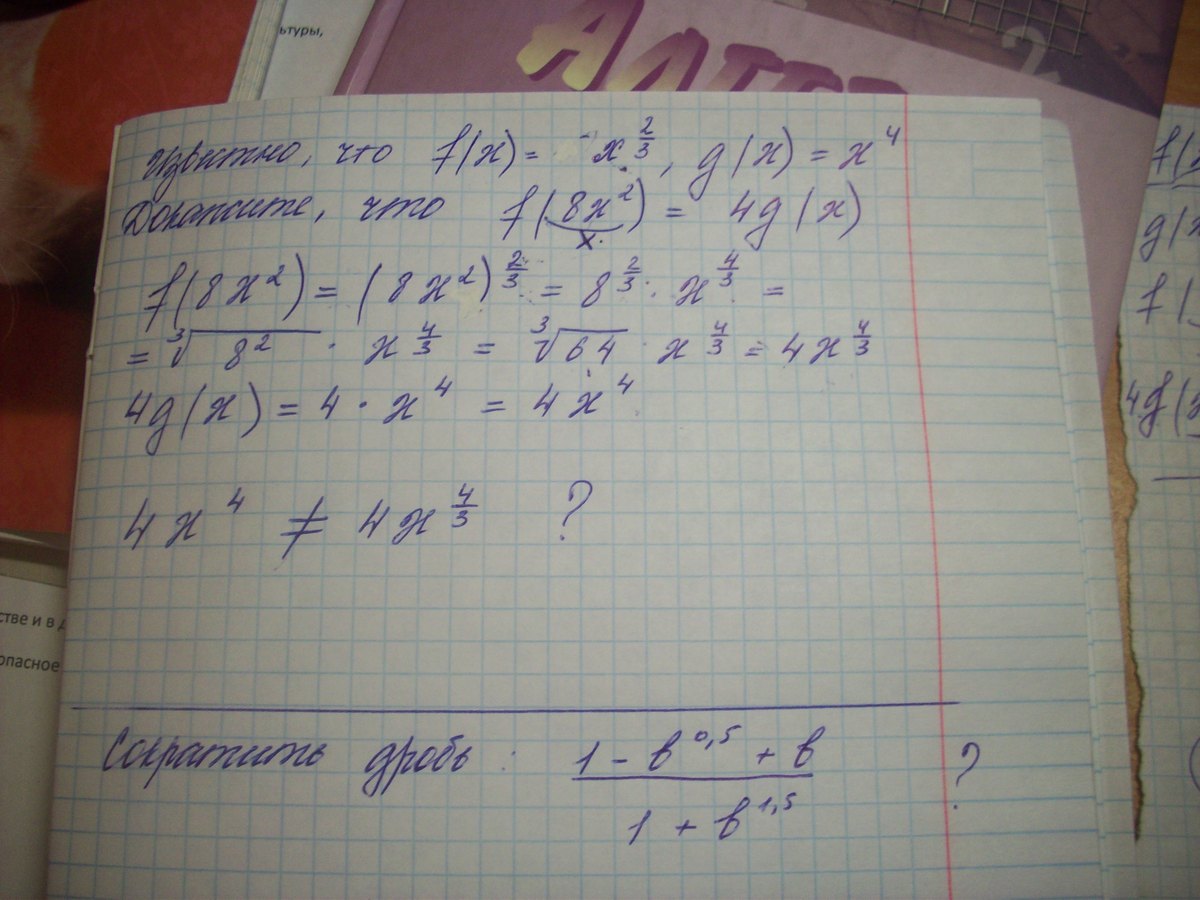 ьтуры,
АЛГЕБ
Известно, что f(x) = x^{2/3}, g(x) = x^4
Докажите, что f(8x^2) = 4g(x)
x
f(8x^2) = (8x^2)^{2/3} = 8^{2/3} · x^{4/3} =
= ∛8^2 · x^{4/3} = ∛64 · x^{4/3} = 4x^{4/3}
4g(x) = 4 · x^4 = 4x^4
4x^4 ≠ 4x^{4/3} ?
стве и в д
опасное
Сократить дробь: (1 - b^{0,5} + b)/(1 + b^{1,5}) ?